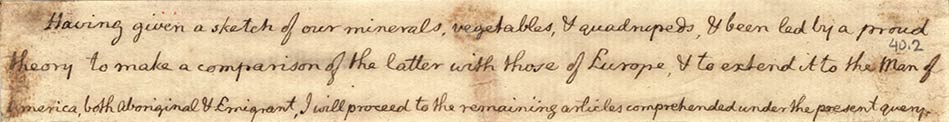 Having given a sketch of our minerals, vegetables, & quadrupeds, & been led by a proud
40.2
theory to make a comparison of the latter with those of Europe, & to extend it to the Man of
America, both Aboriginal & Emigrant, I will proceed to the remaining articles comprehended under the present query.